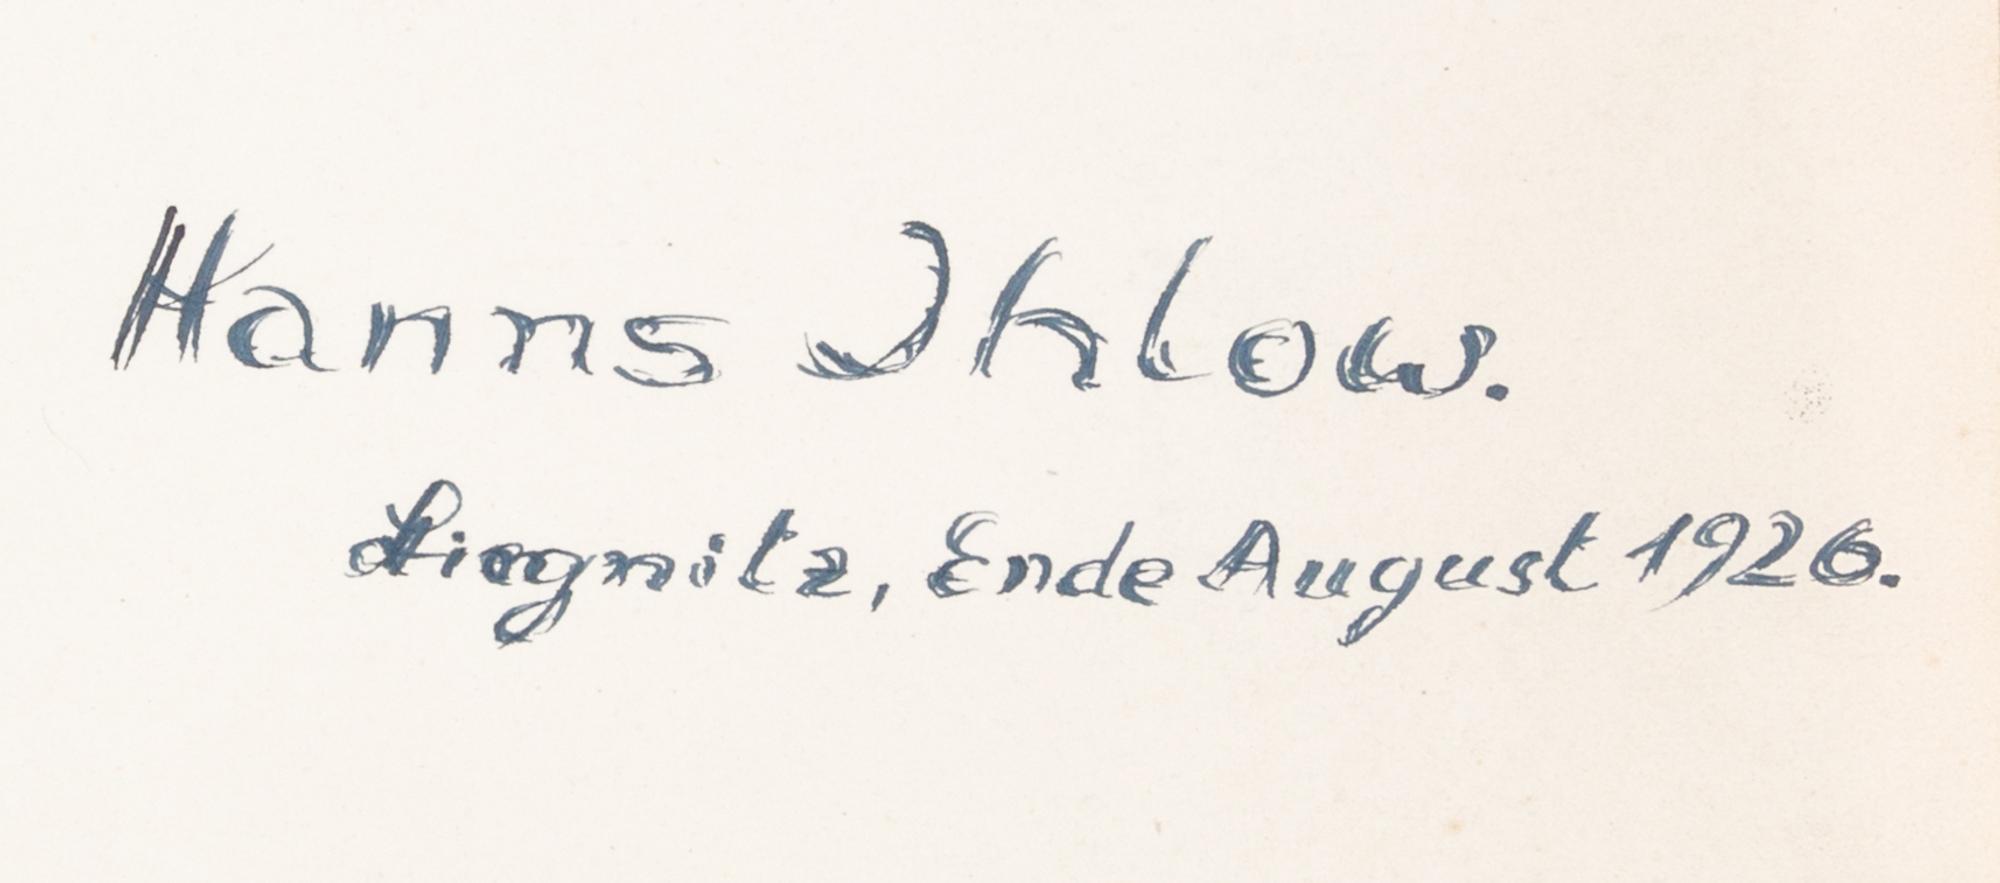 Hanns Ihlow.
Liegnitz, Ende August 1926.